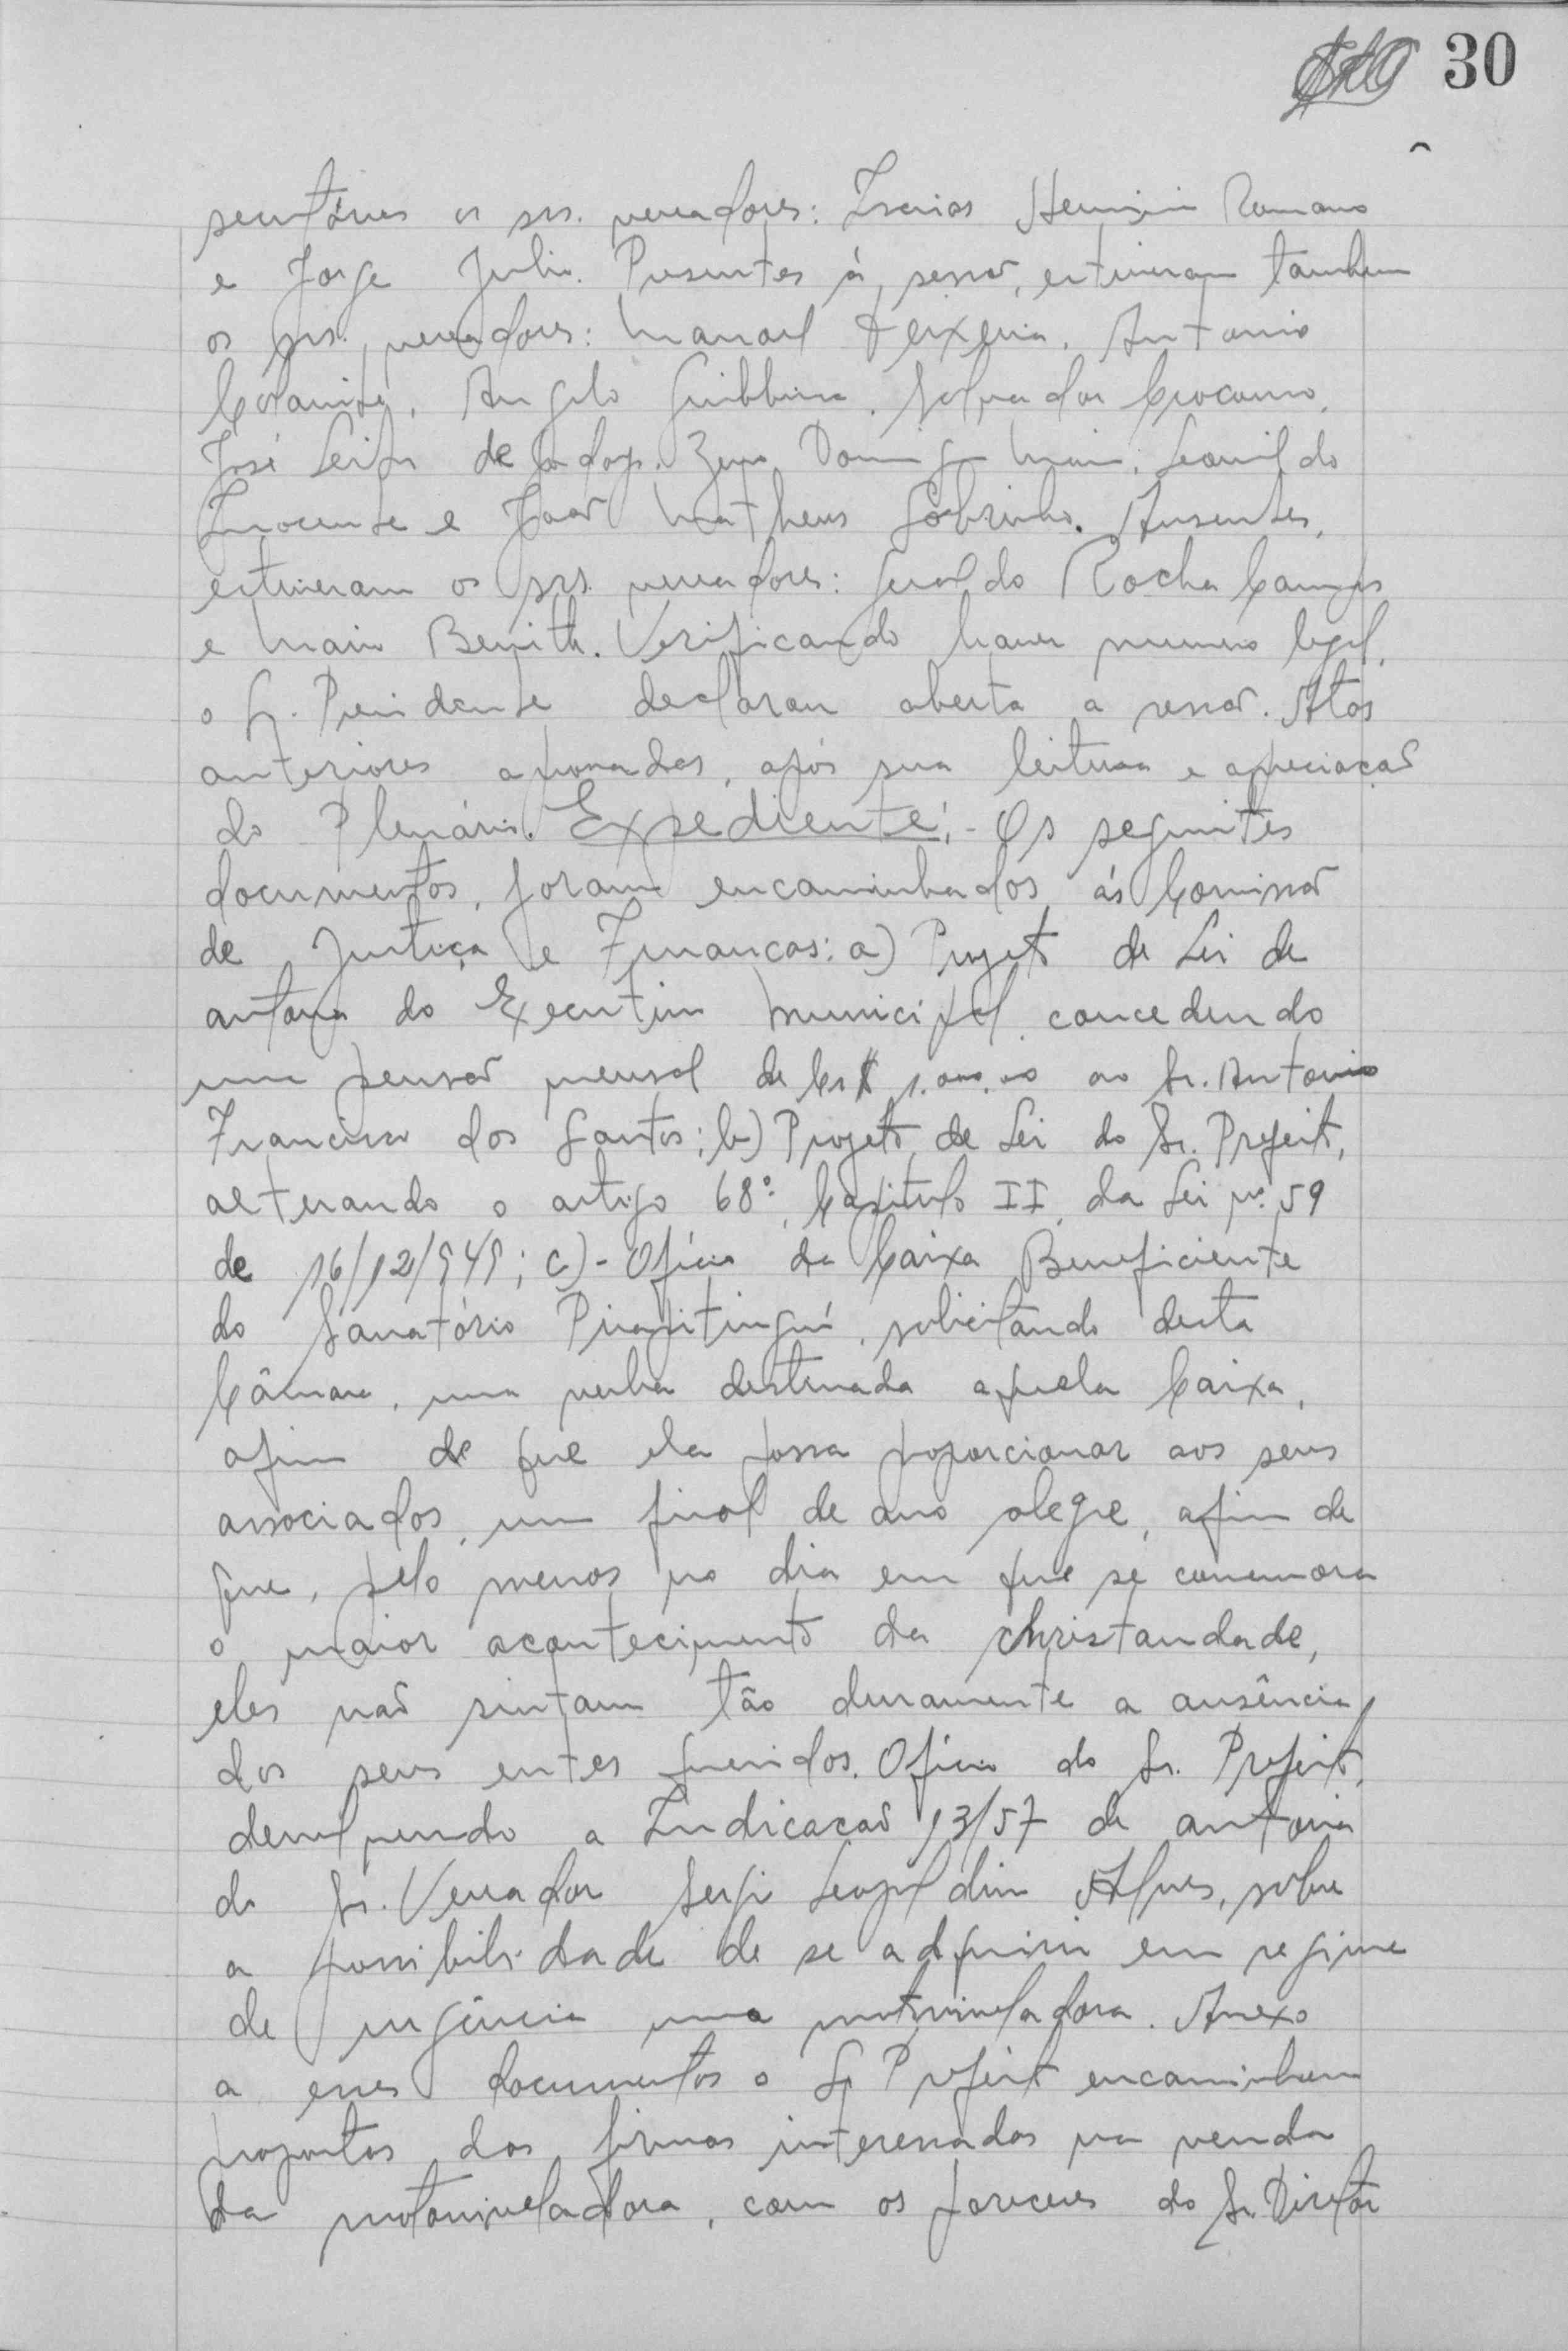 30
secretários os srs. vereadores: Isaias Herminio Romano
e Jorge Julio. Presentes á sessão, estiveram tambem
os srs. vereadores: Manoel Teixeira, Antonio
Angelo Salvador
José Leite de Godoy, Zeno Domingos Maia, Leonildo
Inocente e João Matheus Sobrinho. Ausentes,
estiveram os srs. vereadores: Geraldo Rocha Campos
e Mario Verificando haver numero legal,
o Sr. Presidente declarou aberta a sessão. Atas
anteriores aprovadas, após sua leitura e apreciação
do Plenário. Expediente:- Os seguintes
documentos, foram encaminhados ás Comissão
de Justiça e Finanças: a) Projeto de Lei de
autoria do Executivo Municipal concedendo
uma pensão mensal de Cr$ 1.000,00 ao Sr. Antonio
Francisco dos Santos; b) Projeto de Lei do Sr. Prefeito,
alterando o artigo 68º, Capitulo II, da Lei nº 59
de 16/12/949; c)- Ofício da Caixa Beneficiente
do Sanatório Pirapitinguí, solicitando desta
Câmara, uma verba destinada aquela Caixa,
afim de que ela possa proporcionar aos seus
associados, um final de ano alegre, afim de
que, pelo menos no dia em que se comemora
o maior acontecimento da christandade,
eles não sintam tão duramente a ausência
dos seus entes queridos. Ofício do Sr. Prefeito,
devolvendo a Indicação 13/57 de autoria
do Sr. Vereador Sergio Leopoldino Alves, sobre
a possibilidade de se adquirir em regime
de urgência uma motoniveladora. Anexo
a esses documentos o Sr Prefeito encaminhou
propostas das firmas interessadas na venda
da motoniveladora, com os pareceres do Sr. Diretor